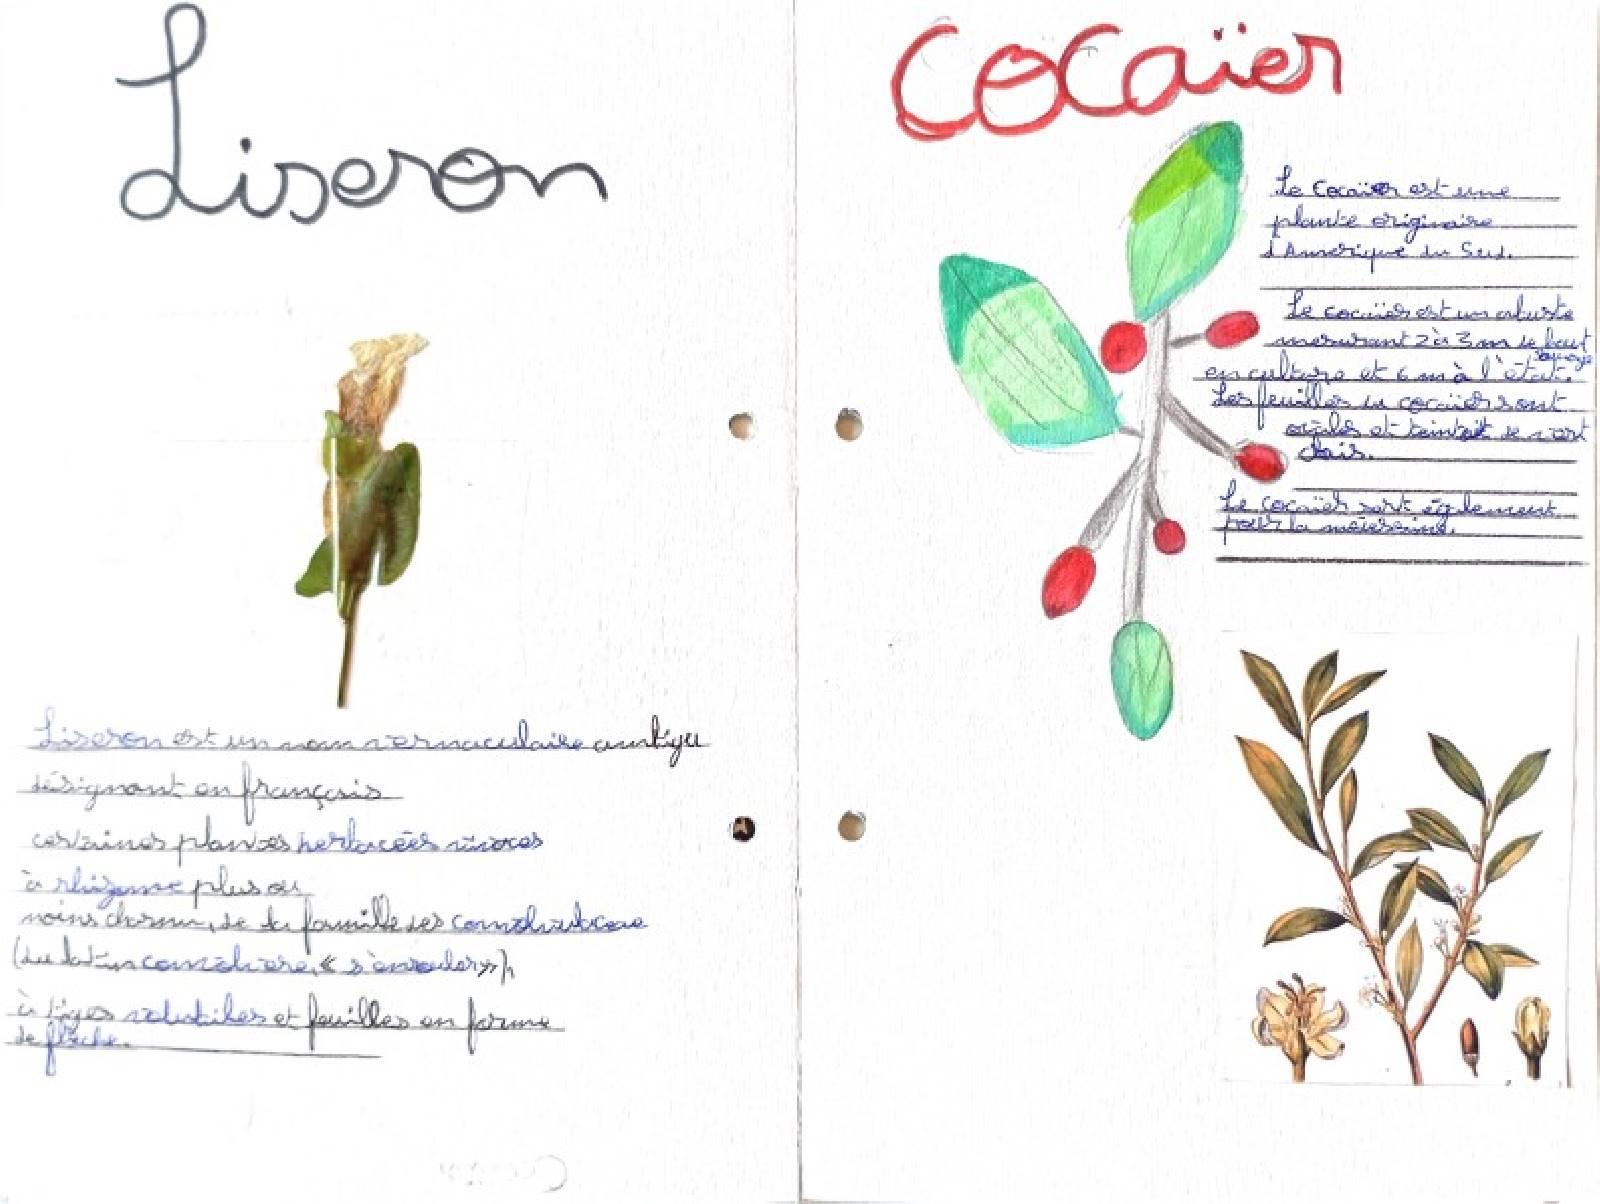 Liseron
Liseron est un nom vernaculaire ambigu
désignant en français
certaines plantes herbacées vivaces
à rhizome plus ou
moins charnu, de la famille des
(du latin convolvere, « s'enrouler »),
à tiges volubiles et feuilles en forme
de flèche.
Cocaïer
Le Cocaïer est une
plante originaire
d'Amerique du Sud.
Le cocaïer est un arbuste
mesurant 2 à 3 m de haut
en culture et 6 m à l'état
sauvage.
Les feuilles du cocaïer sont
ovales et teintait de vert
clair.
Le cocaïer sert également
pour la médecine.